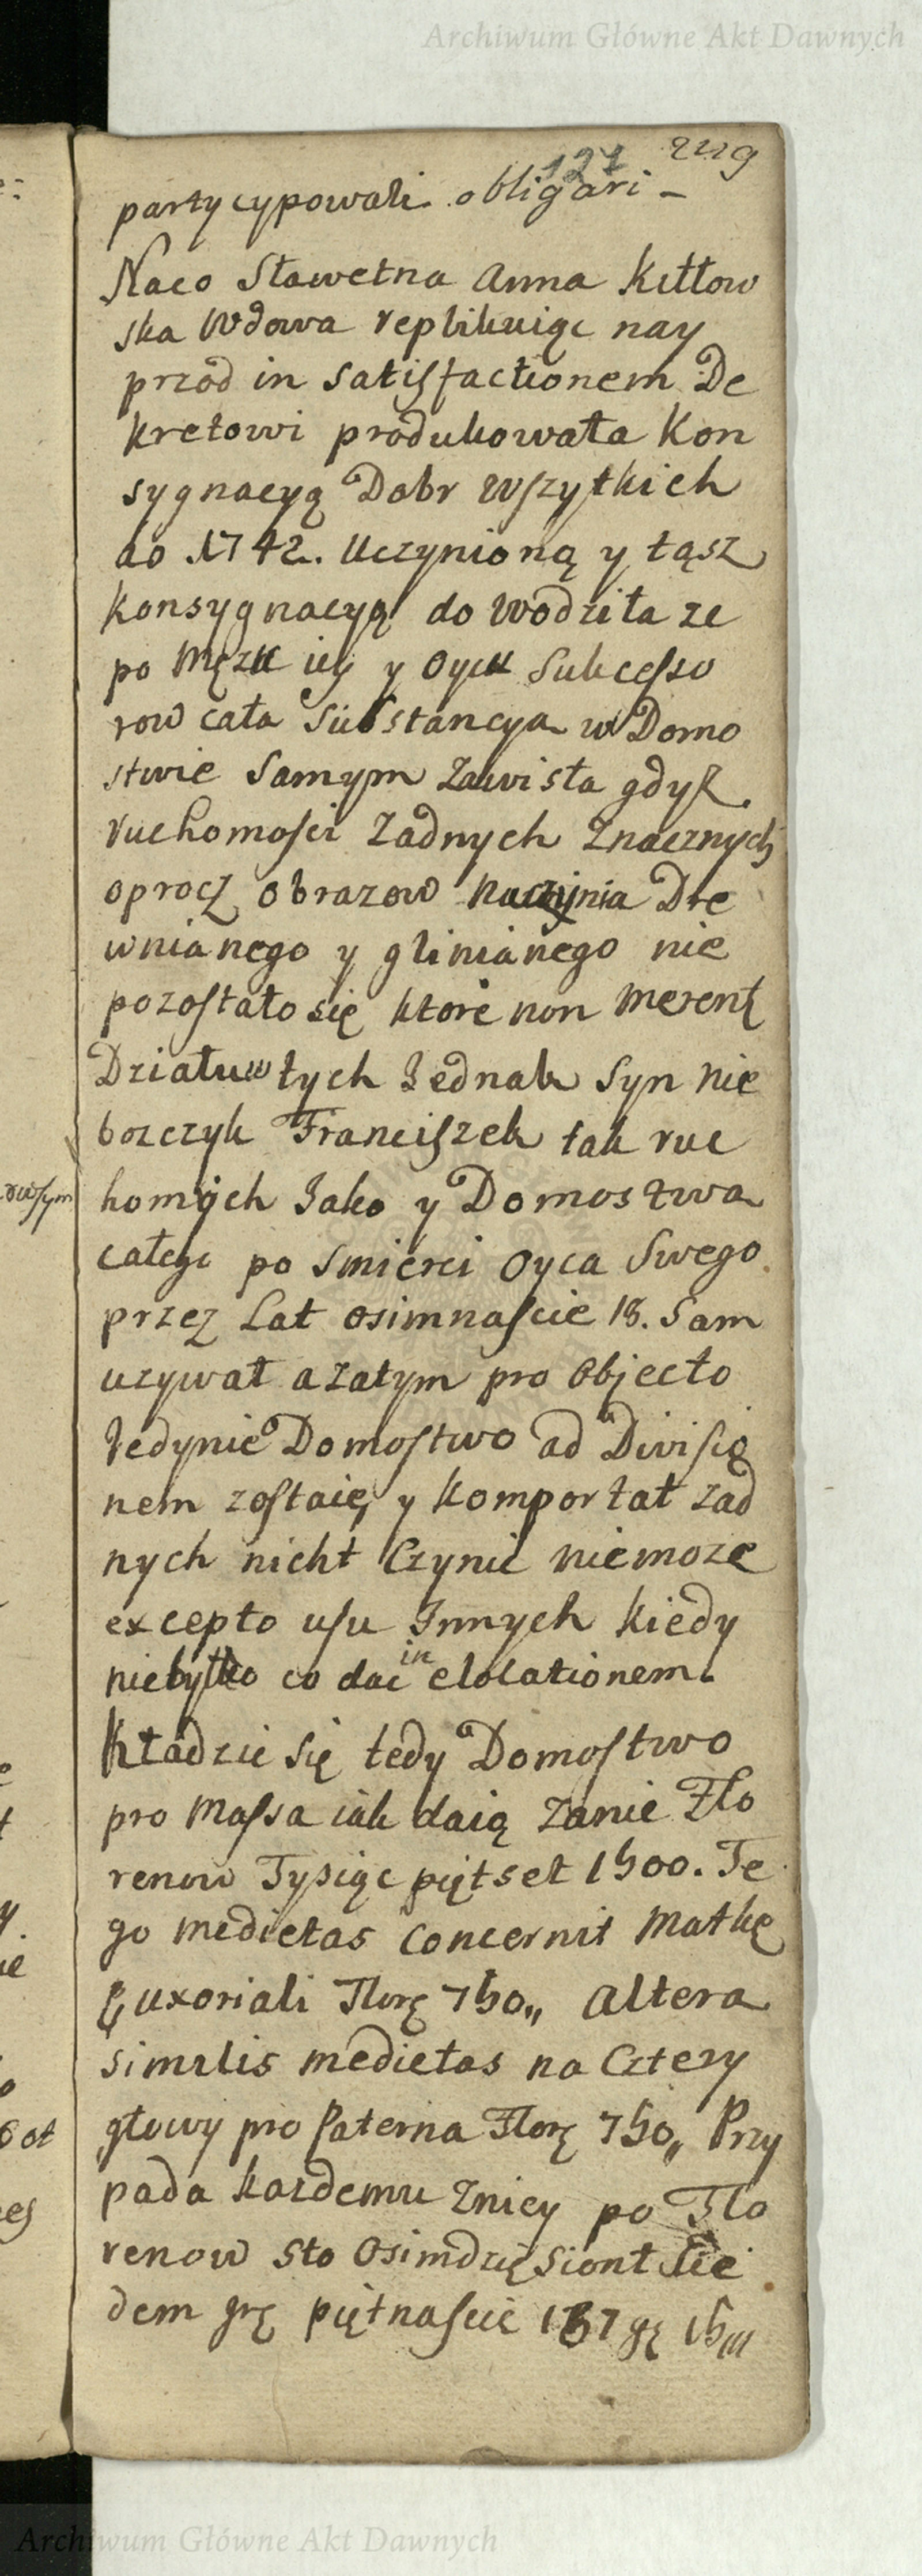 Archiwum Główne Akt Dawnych
127
partycypowali obligari –
Naco Sławetna Anna Kittow
ska Wdowa replikuiąc nay
przod in satisfactionem De
kretowi produkowała Kon
sygnacyą Dobr Wszytkich
do 1742. Uczynioną y tąsz
Konsygnacyą do wodziła ze
po Mężu iey y Oycu Sukcesso
row cała Substancya w Domo
stwie Samym zawisła gdysz
ruchomosci Zadnych Znacznych
oprocz obrazow naczynia Dre
wnianego y glinianego nie
pozostało się ktore non merent
Działu w tych Jednak Syn nie
bozczyk Franciszek tak ruc
homych Jako y Domostwa
całego po smierci Oyca Swego
przez Lat osimnascie 18. Sam
uzywał a zatym pro Objecto
Jedynie Domostwo ad Divisio
nem zostaie, y komportat zad
nych nicht Czynić niemoze
excepto usu Innych kiedy
niebyłko co dac in elocationem.
Kładzie się tedy Domostwo
pro Massa iak daią Zanie Flo
renow Tysiąc piętset 1500. Te
go medietas concernit Matkę
uxoriali Flore 750„ Altera
similis medietas na Cztery
głowy pro Paterna Flore 750„ Przy
pada kazdemu Znicy po Flo
renow sto Osimdziesiont Sie
dem gre piętnascie 187 gr 15
Archiwum Główne Akt Dawnych